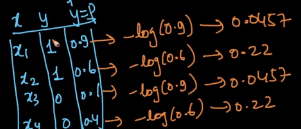 x y ŷ=P
x₁ 1 0.9 → -log(0.9) → 0.0457
x₂ 1 0.6 → -log(0.6) → 0.22
x₃ 0 0.1 → -log(0.9) → 0.0457
x₄ 0 0.4 → -log(0.6) → 0.22